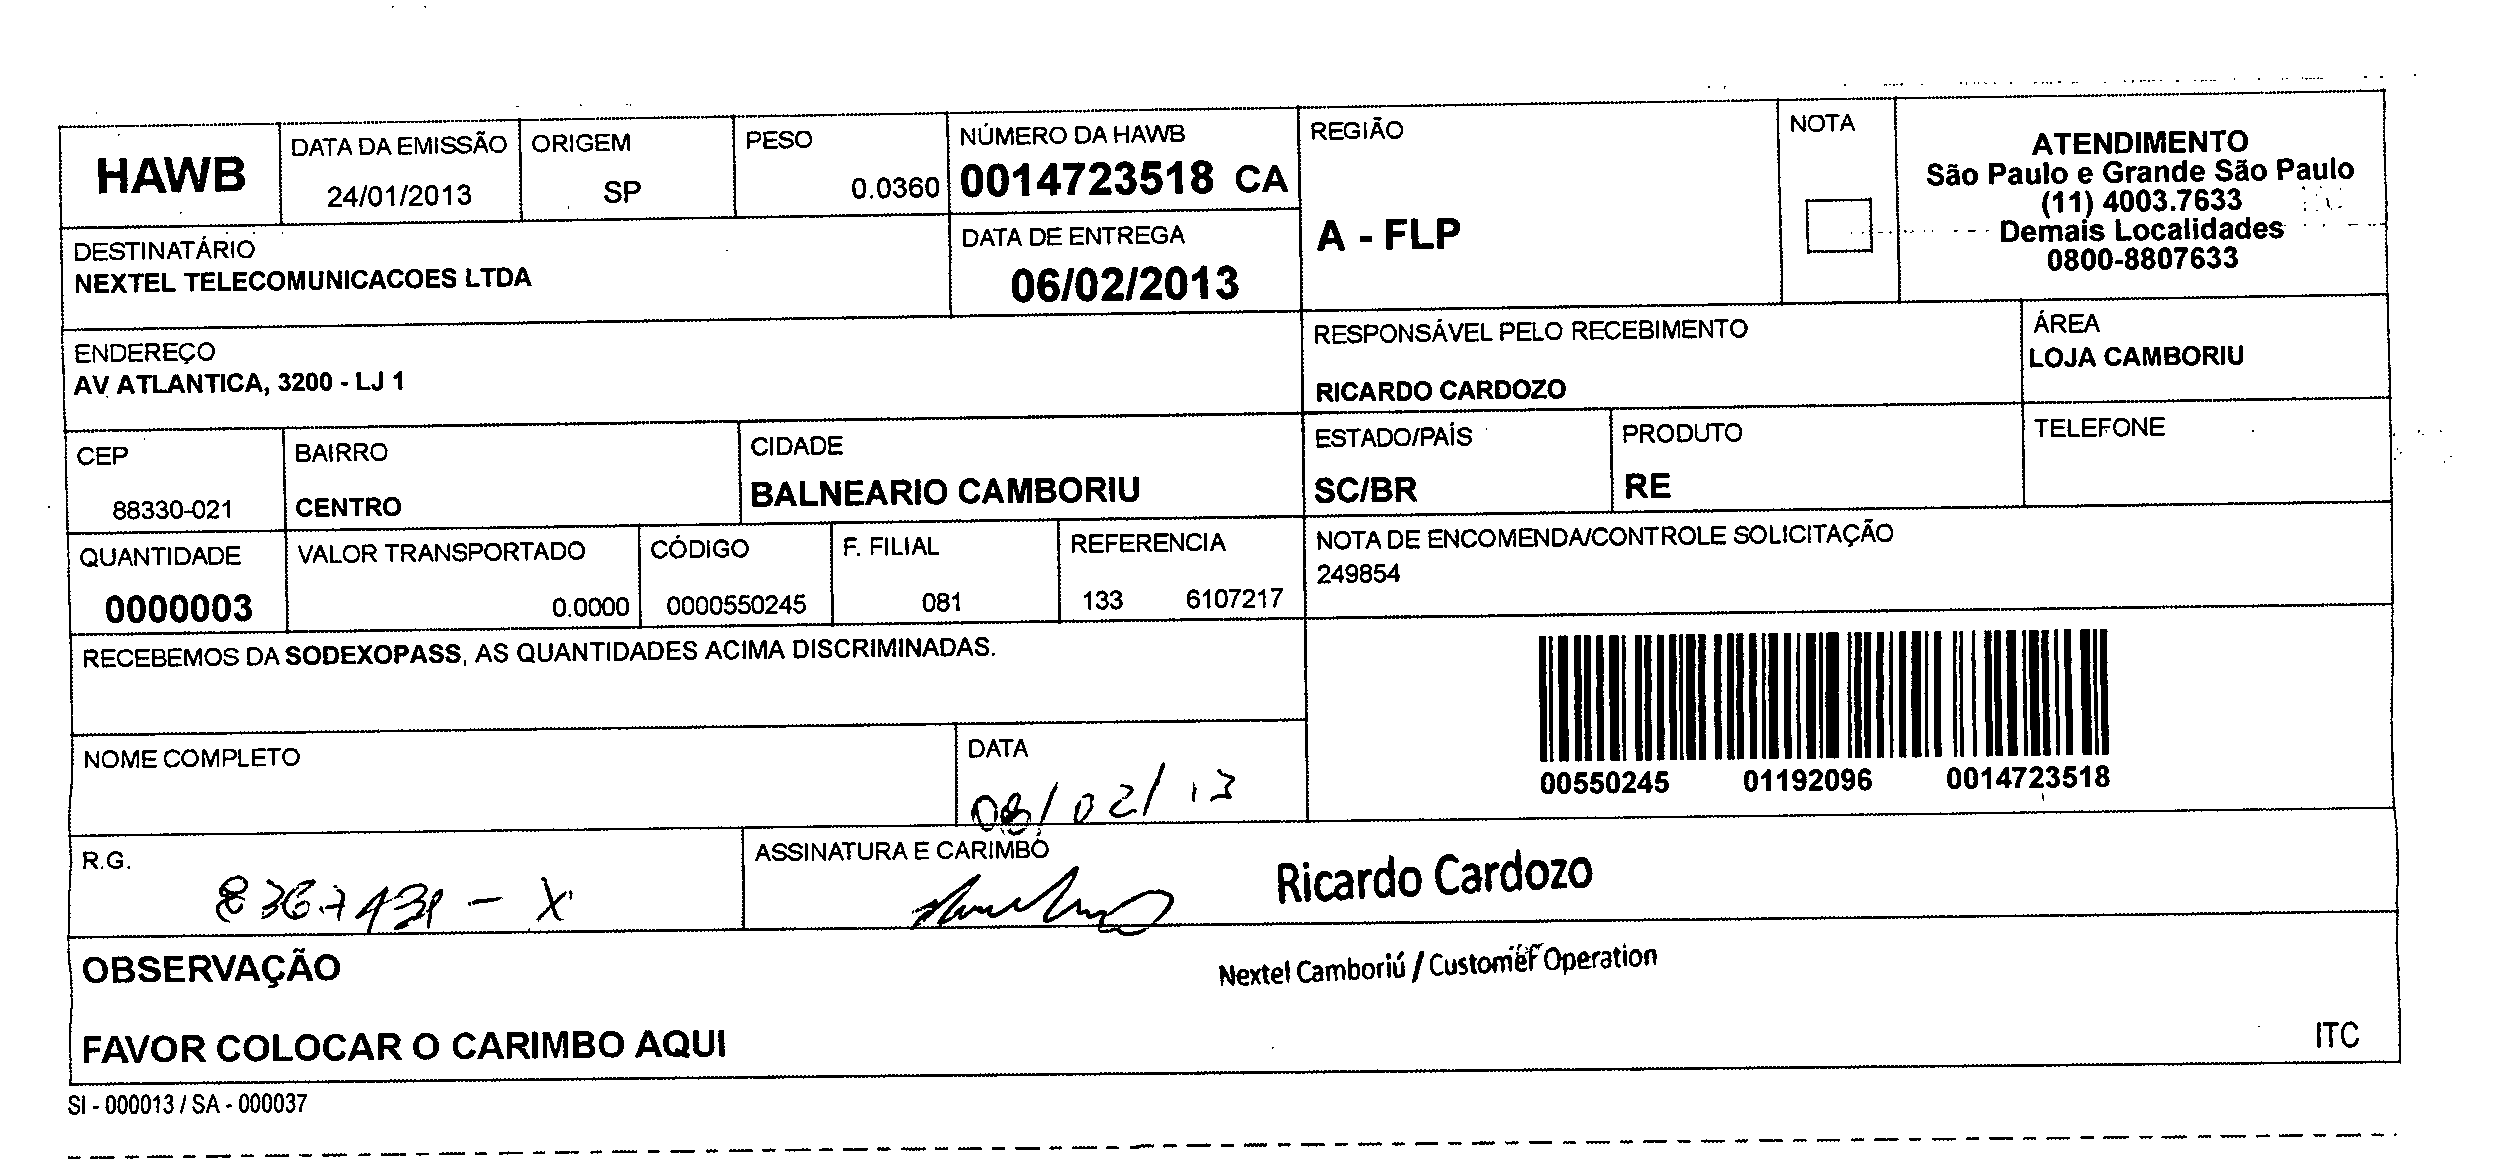 HAWB
DATA DA EMISSÃO
24/01/2013
ORIGEM
SP
PESO
0.0360
NÚMERO DA HAWB
0014723518 CA
REGIÃO
A - FLP
NOTA
ATENDIMENTO
São Paulo e Grande São Paulo
(11) 4003.7633
Demais Localidades
0800-8807633
DESTINATÁRIO
NEXTEL TELECOMUNICACOES LTDA
DATA DE ENTREGA
06/02/2013
ENDEREÇO
AV ATLANTICA, 3200 - LJ 1
RESPONSÁVEL PELO RECEBIMENTO
RICARDO CARDOZO
ÁREA
LOJA CAMBORIU
CEP
88330-021
BAIRRO
CENTRO
CIDADE
BALNEARIO CAMBORIU
ESTADO/PAÍS
SC/BR
PRODUTO
RE
TELEFONE
QUANTIDADE
0000003
VALOR TRANSPORTADO
0.0000
CÓDIGO
0000550245
F. FILIAL
081
REFERENCIA
133 6107217
NOTA DE ENCOMENDA/CONTROLE SOLICITAÇÃO
249854
RECEBEMOS DA SODEXOPASS, AS QUANTIDADES ACIMA DISCRIMINADAS.
00550245 01192096 0014723518
NOME COMPLETO
DATA
08/02/13
R.G.
8367431-X
ASSINATURA E CARIMBO
Ricardo Cardozo
Nextel Camboriú / Customer Operation
OBSERVAÇÃO
FAVOR COLOCAR O CARIMBO AQUI
ITC
SI - 000013 / SA - 000037